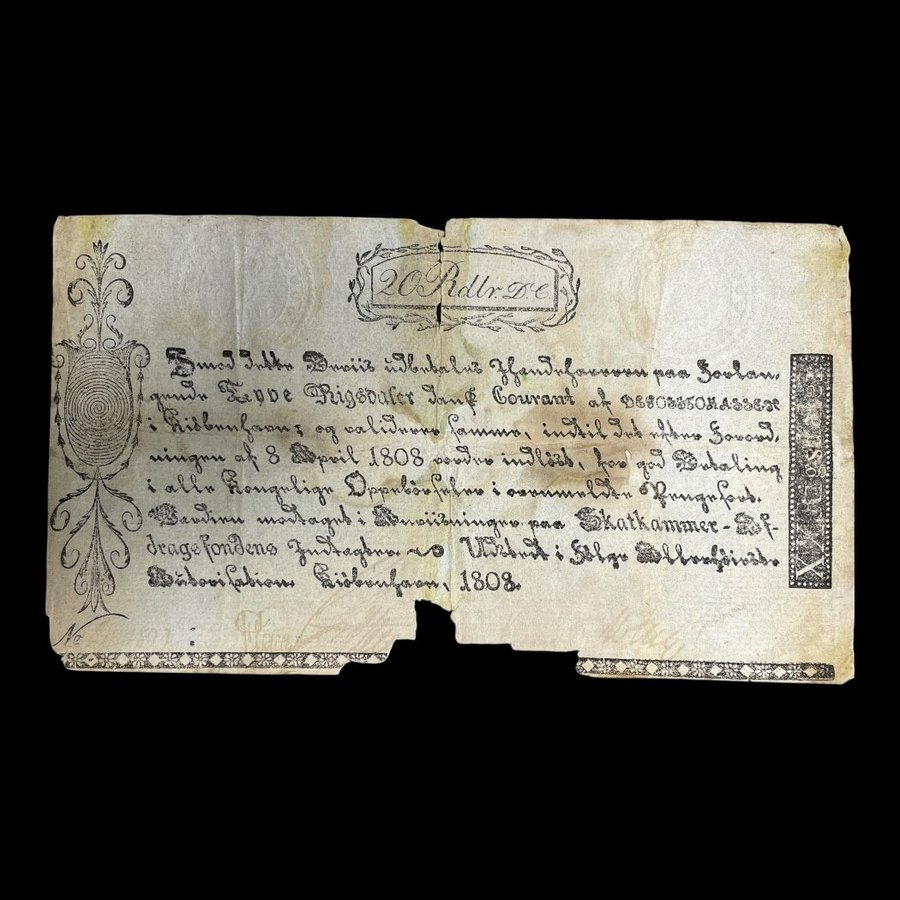 20 Rdlr. D. C.
Imod dette Beviis udbetales Ihændehaveren paa Forlan-
gende Tyve Rigsdaler dansk Courant af DEPOSITOCASSEN
i Kiøbenhavn; og validerer samme, indtil det efter Forord-
ningen af 8 April 1808 vorder indløst, for god Betaling
i alle Kongelige Oppebørseler i ovenmeldte Pengesort.
Værdien modtaget i Anviisninger paa Skatkammer-Af-
dragsfondens Indtægter. Udstedt i Følge Allerhøieste
Autorisation. Kiøbenhavn, 1808.
No